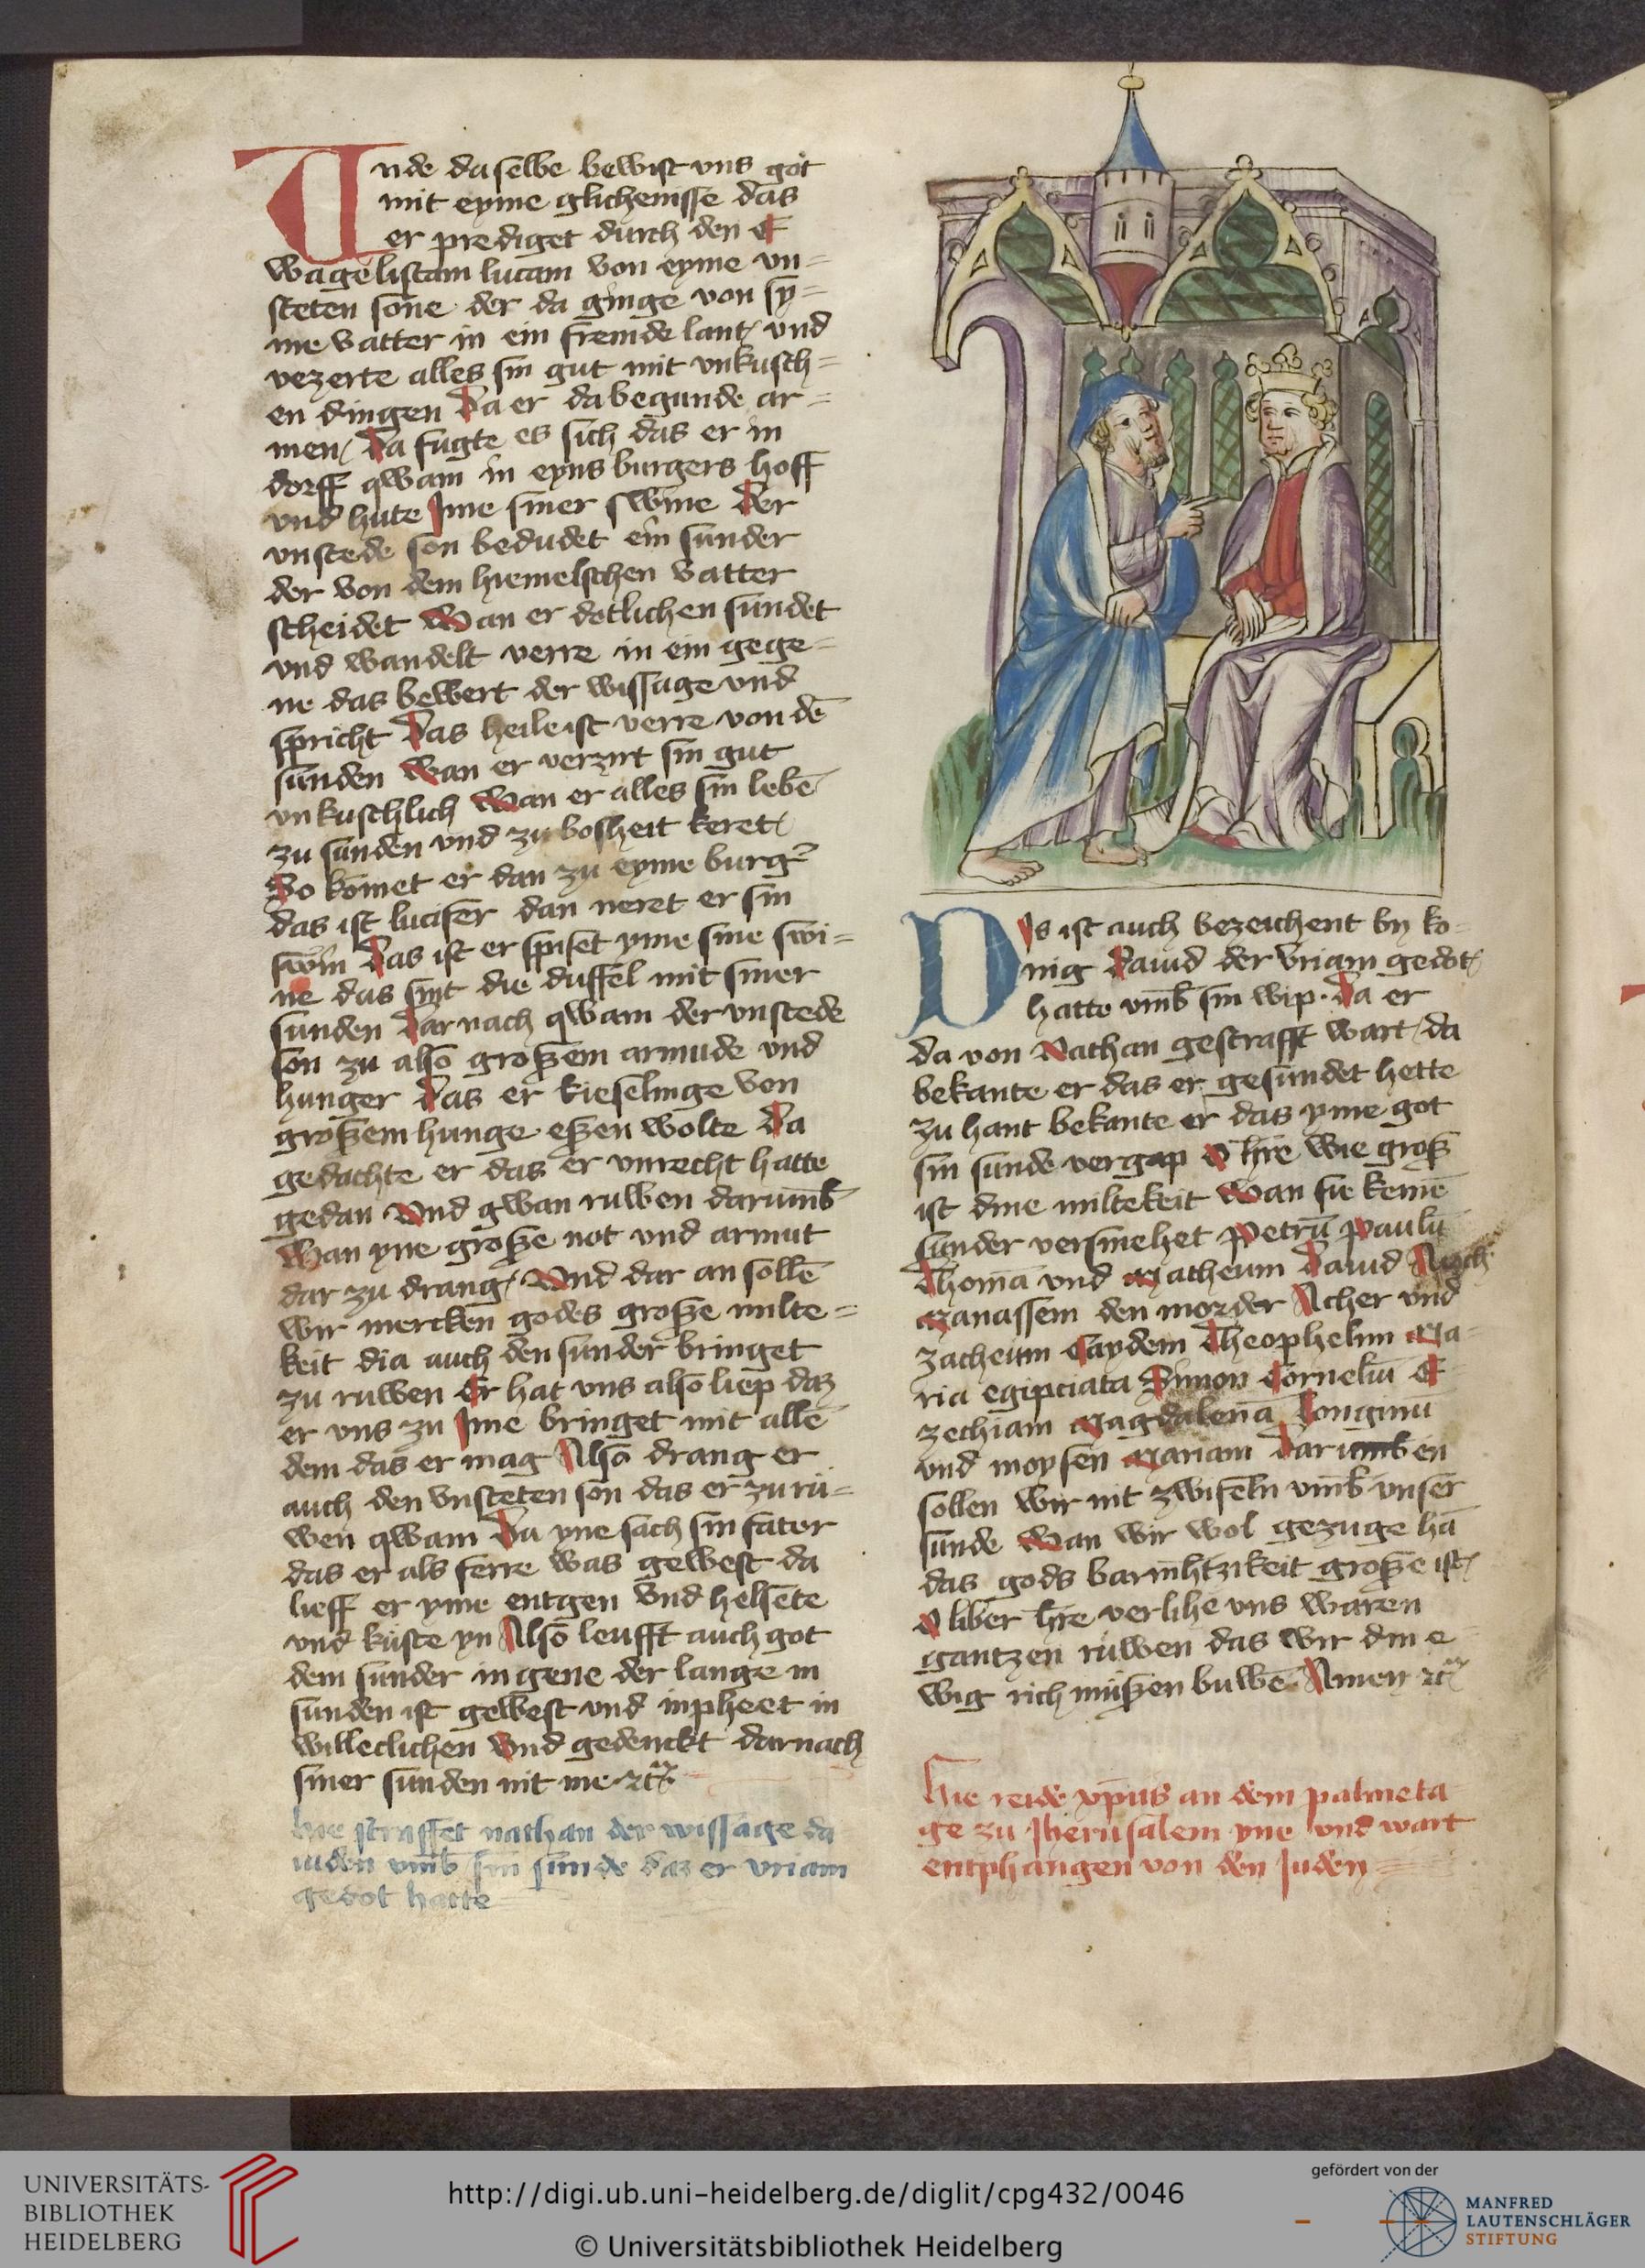 Unde daselbe bewist vns got
mit eyme glichenisse das
er prediget durch den E
wagelistam lucam von eyme vn=
steten sone der da ginge von sy=
me vatter in ein fremde lant/ vnd
vezerte alles sin gut mit vnkusch=
en dingen Da er da begunde ar=
men/ Da fugte es sich das er in
dorff qwam in eyns burgers hoff
vnd hute Ime siner swine Der
vnstede son bedudet ein sunder
der von dem hiemelschen vatter
scheidet Wan er dotlichen sundet
vnd wandelt verre in ein gege=
ne das bewert der wissage vnd
spricht Das heile ist verre von dē
sunden Wan er verzirt sin gut
vnkuschlich Wan er alles sin lebē
zu sunden vnd zu bosheit keret/
So komet er dan zu eyme burg̉
das ist lucifer dan neret er sin
swin Das ist er spiset yme sine swi=
ne das sint die duffel mit siner
sunden Dar nach qwam der vnstede
son zu also großem armude vnd
hunger Das er kieselinge von
großem hunge eßen wolte Da
gedachte er das er vnrecht hatte
gedan Vnd gwan ruwen darum̄b
Wan yne große not vnd armut
dar zu drang/ Vnd dar an sollē
wir mercken godes große milte=
keit dia auch den sunder bringet
zu ruwen Er hat vns also liep daz
er vns zu Ime bringet mit allē
dem das er mag Also drang er
auch den vnsteten son das er zu ru=
wen qwam Da yne sach sin fater
das er als ferre was gewest da
lieff er yme entgen vnd helsete
vnd kuste yn Also leufft auch got
dem sunder in gene der lange in
sunden ist gewest vnd inpheet in
willeclichen Vnd gedenckt darnach
siner sunden nit me ꝛcꝛ̃
hie straffet nathan der wissage da
uiden vm̄b sin sunde daz er vriam
gedot hatte
DIs ist auch bezeichent by ko=
nig Dauid der Vriam gedot/
hatte vm̄b sin wip. Da er
da von Nathan gestrafft wart/ da
bekante er das er gesundet hette
zu hant bekante er das yme got
sin sunde vergap O h̄re wie groß
ist dine miltekeit Wan sie keinē
sunder versmehet Petrū Paulū
Thomā vnd Matheum Dauid Noch
Manassem den morder Acher vnd
zacheum Saydem Theophelim Ma=
ria egipciata Simon Corneliū E=
zechiam Magdalenā Longinū
vnd moysen Mariam Darumb en
sollen wir nit zwifeln vm̄b vnser
sunde Wan wir wol gezuge hā
das gods barm̄htzikeit große ist/
O liber h̄re verlihe vns waren
gantzen ruwen das wir din e=
wig rich mußen buwē Amen ꝛcꝛ̃
hie reide xp̄us an dem palmeta
ge zu Jherusalem yne vnd wart
entphangen von den Juden
UNIVERSITÄTS-
BIBLIOTHEK
HEIDELBERG
http://digi.ub.uni-heidelberg.de/diglit/cpg432/0046
© Universitätsbibliothek Heidelberg
gefördert von der
MANFRED
LAUTENSCHLÄGER
STIFTUNG